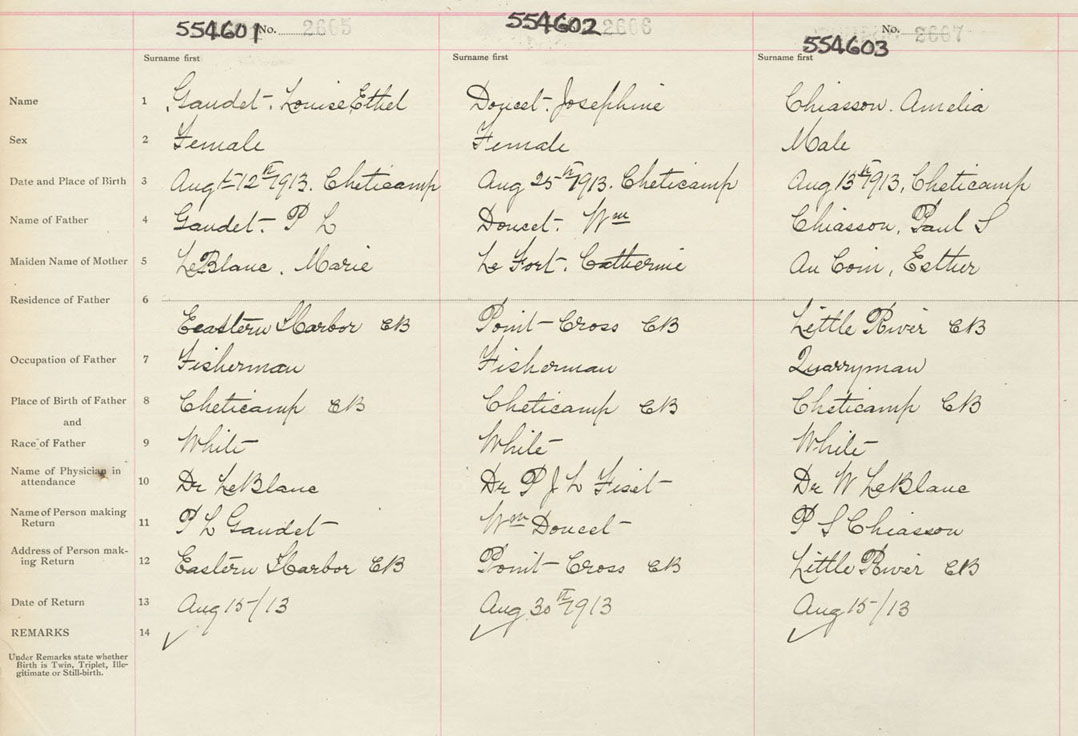 554601 No. 2605 554602 2606 554603 No. 2607
Surname first Surname first Surname first
Name 1 Gaudet. Louise Ethel Doucet. Josephine Chiasson. Amelia
Sex 2 Female Female Male
Date and Place of Birth 3 Augt 12th 1913. Cheticamp Aug 25th 1913. Cheticamp Aug 13th 1913, Cheticamp
Name of Father 4 Gaudet. P L Doucet. Wm Chiasson, Paul S
Maiden Name of Mother 5 LeBlanc. Marie Le Fort. Catherine Au Coin, Esther
Residence of Father 6
Eeastern Harbor CB Point-Cross CB Little River CB
Occupation of Father 7 Fisherman Fisherman Quarryman
Place of Birth of Father 8 Cheticamp CB Cheticamp CB Cheticamp CB
and
Race of Father 9 White White White
Name of Physician in
attendance 10 Dr LeBlanc Dr P J L Fiset Dr W LeBlanc
Name of Person making
Return 11 P L Gaudet Wm Doucet P S Chiasson
Address of Person mak-
ing Return 12 Eastern Harbor CB Point-Cross CB Little River CB
Date of Return 13 Aug 15/13 Aug 30th 1913 Aug 15/13
REMARKS 14
Under Remarks state whether
Birth is Twin, Triplet, Ille-
gitimate or Still-birth.